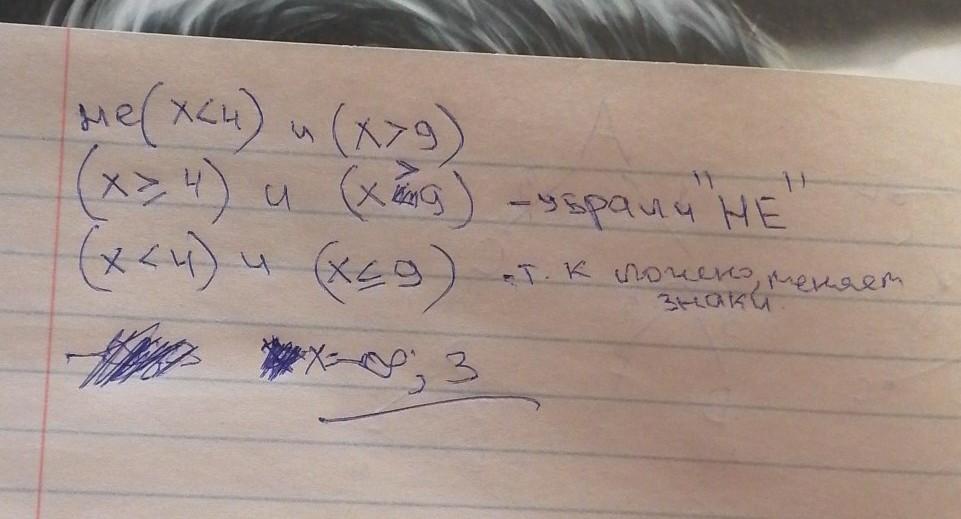 не(x<4) и (x>9)
(x≥4) и (x>9) -убрали "НЕ"
(x<4) и (x≤9) -т. к ложно, меняем
знаки.
x=-∞; 3